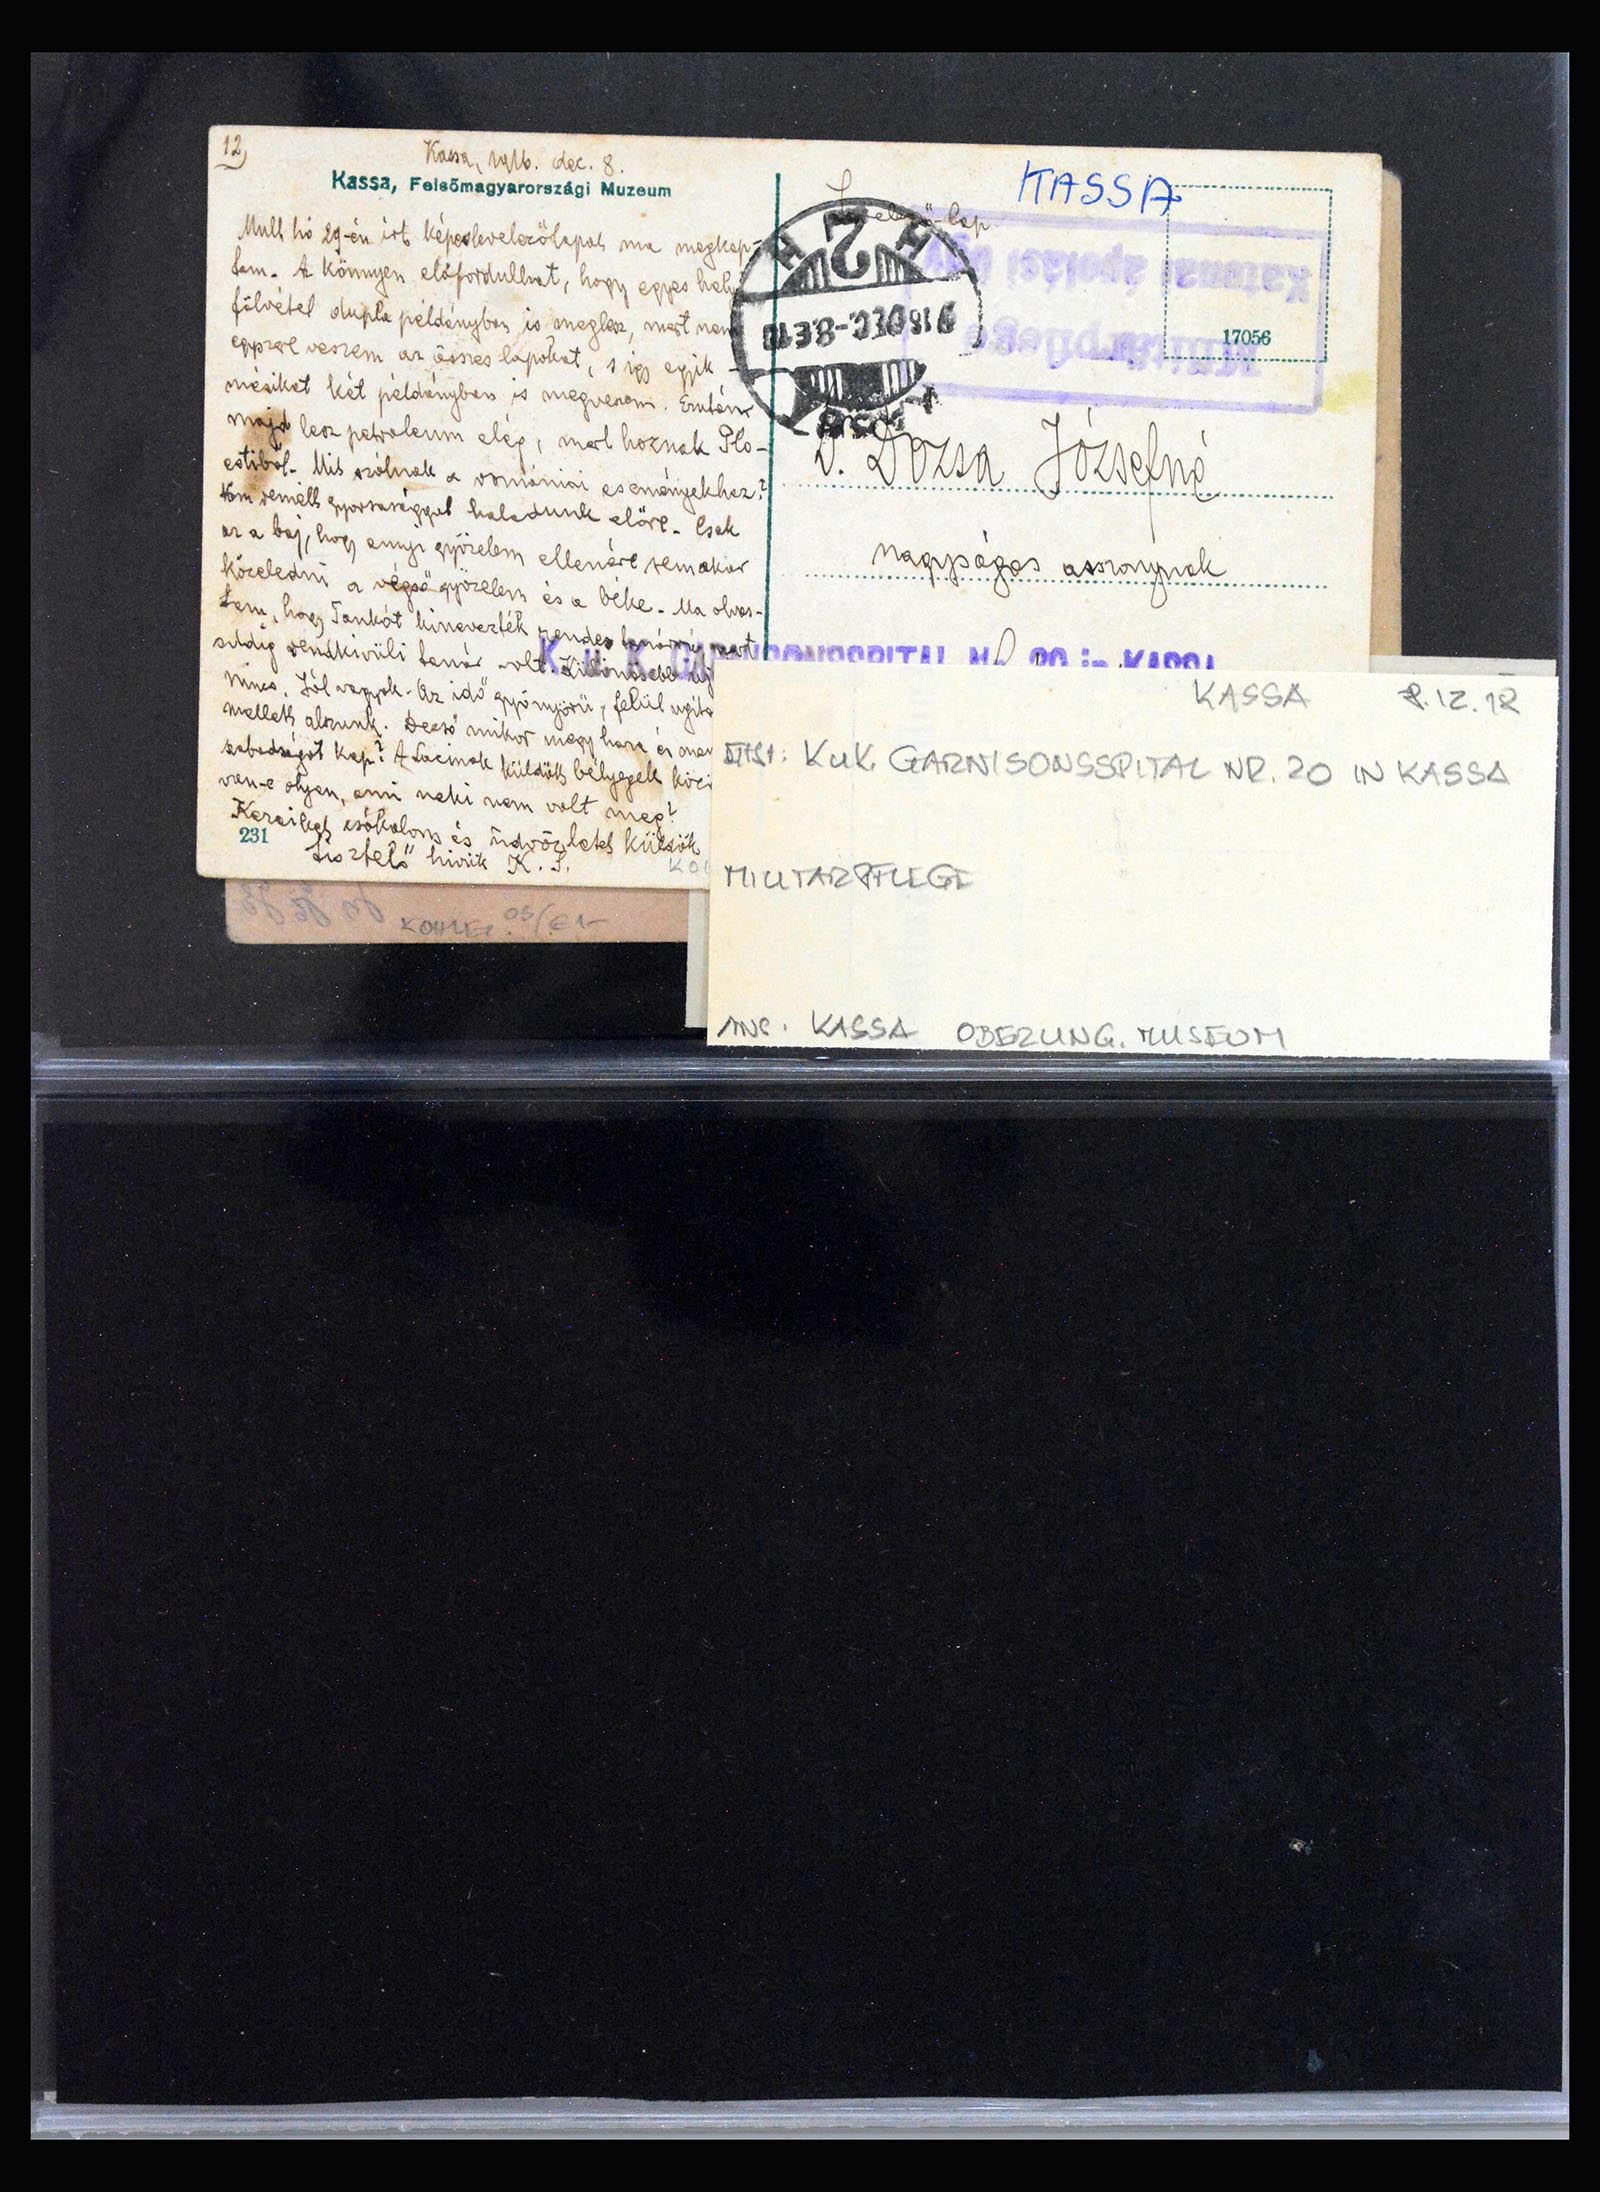 12)
Kassa, 1916. dec. 8.
Kassa, Felsőmagyarországi Muzeum
Mult hó 29-én irt képeslevelezőlapot ma megkap-
tam. Az könnyen előfordulhat, hogy egyes hely
fölvétel dupla példányban is meglesz, mert nem
egyszerre veszem az összes lapokat, s igy egyik-
másikat két példányban is megveszem. Ezután
majd lesz petroleum elég, mert hoznak Plo-
estiből. Mit szólnak a romániai eseményekhez?
Nem remélt gyorsasággal haladunk előre. Csak
az a baj, hogy annyi győzelem ellenére sem akar
közeledni a végső győzelem és a béke. Ma olvas-
tam, hogy Tankót kinevezték rendes tanárrá, mert
eddig rendkivüli tanár volt. Különösebb ujs
nincs. Jól vagyok. Az idő gyönyörü,
mellett alszunk. Dezső mikor megy haza és
szabadságot kap? A Lacinak küldött bélyegek közö
van-e olyan, ami neki nem volt meg?
Kezeiket csókolom és üdvözletet küldök
231
tisztelő hivük K. S.
KASSA
Levelező-lap
Katonai ápolási ügy
Militärpflege
17056
2
916 DEC. -8. E 10
D. Dózsa Józsefné
nagyságos asszonynak
K. u. K. GARNISONSSPITAL Nr. 20 in KASSA
KASSA 8.12.12
KuK. GARNISONSSPITAL NR. 20 IN KASSA
MILITÄRPFLEGE
ANS. KASSA OBERUNG. MUSEUM
KOHLER 05/€1-